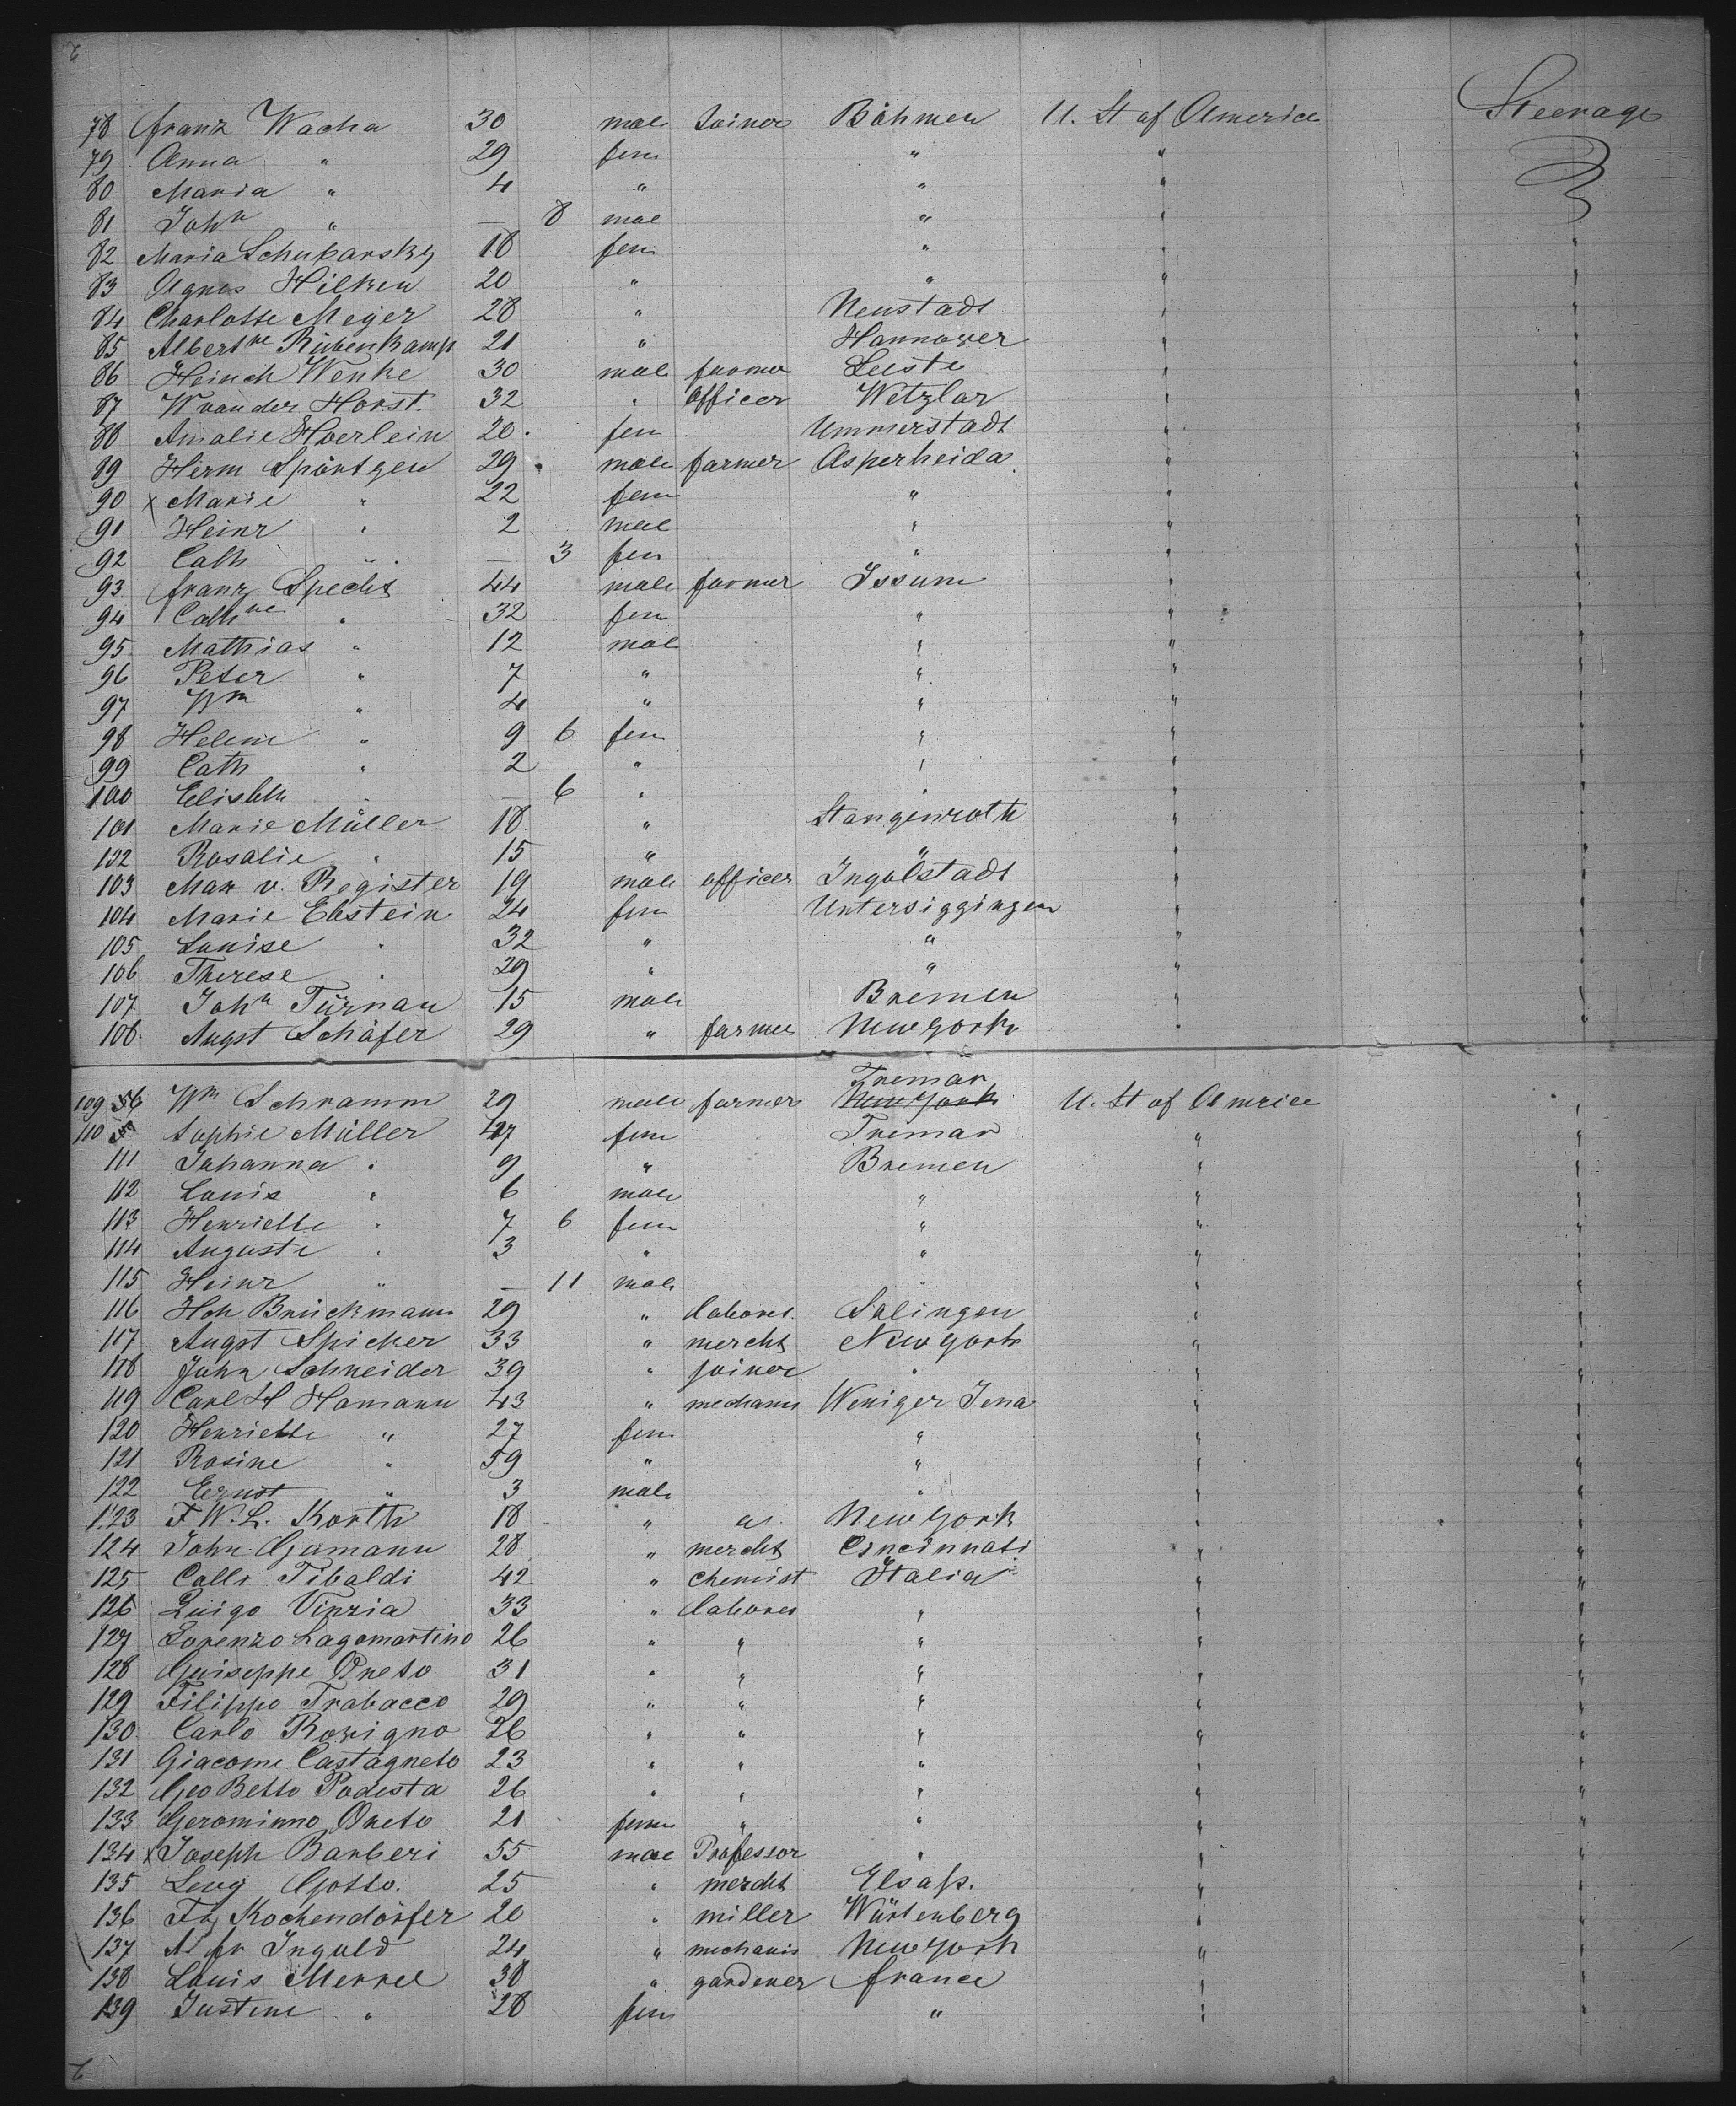 6
78 Franz Wacha 30 male Joiner Böhmen U. St of America Steerage
79 Anna " 29 fem " "
80 Maria " 4 " " "
81 Joh<sup>n</sup> " — 8 male " "
82 Maria Schukarsky 18 fem " " "
83 Agnes Hilken 20 " " " "
84 Charlotte Meijer 28 " Neustadt " "
85 Albert<sup>ne</sup> Rübenkamp 21 " Hannover " "
86 Heinch Wenke 30 male farmer Leeste " "
87 W van der Horst. 32 " officer Wetzlar " "
88 Amalie Hoerlein 20 fem Ummerstadt " "
89 Herm Spöntgen 29 male farmer Asperheida " "
90 x Marie " 22 fem " " "
91 Heinr " 2 male " " "
92 Cath " — 3 fem " " "
93 Franz Specht 44 male farmer Issum " "
94 Cath<sup>ne</sup> " 32 fem " " "
95 Mathias " 12 male " " "
96 Peter " 7 " " " "
97 W<sup>m</sup> " 4 " " " "
98 Helene " 9 6 fem " " "
99 Cath " 2 " " " "
100 Elisbth " — 6 " " " "
101 Marie Müller 18 " Stangenroth " "
102 Rosalie " 15 " " " "
103 Max v. Register 19 male officer Ingolstadt " "
104 Marie Ebstein 24 fem Untersiggingen " "
105 Louise " 32 " " " "
106 Therese " 29 " " " "
107 Joh<sup>n</sup> Türnau 15 male Bremen " "
108. Augst Schäfer 29 " farmer New York " "
Tremar
109 56 W<sup>m</sup> Schramm 29 male farmer New York U. St of America "
110 Sophie Müller 47 fem Tremar " "
111 Johanna " 9 " Bremen " "
112 Louis " 6 male " " "
113 Henriette " 7 6 fem " " "
114 Auguste " 3 " " " "
115 Heinr " — 11 male " " "
116 Hch Brückmann 29 " laborer Solingen " "
117 Augst Spicker 33 " mercht New York " "
118 John Schneider 39 " joiner " " "
119 Carl H Hamann 43 " mechanis Weniger Jena " "
120 Henriette " 27 fem " " "
121 Rosine " 59 " " " "
122 Ernst " 3 male " " "
123 F. W. L. Korth 18 " New York " "
124 John Germann 28 " mercht Cincinnati " "
125 Tibaldi 42 " chemist Italia " "
126 Luigo Vinzia 33 " laborer " " "
127 Lorenzo Lagomartino 26 " " " " "
128 Guiseppe Oneto 31 " " " " "
129 Filippo Trabacco 29 " " " " "
130 Carlo Rovigno 26 " " " " "
131 Giacome Castagneto 23 " " " " "
132 Geo Betto Podesta 26 " " " " "
133 Gerominno Oneto 21 fem " " " "
134 x Joseph Barberi 55 male Professor " " "
135 Levy Gotto. 25 " mercht Elsaß. " "
136 Kochendörfer 20 " miller Würtenberg " "
137 Ingold 24 " mechanis New York " "
138 Louis Merkel 38 " gardener France " "
139 Justene " 28 fem " " "
6